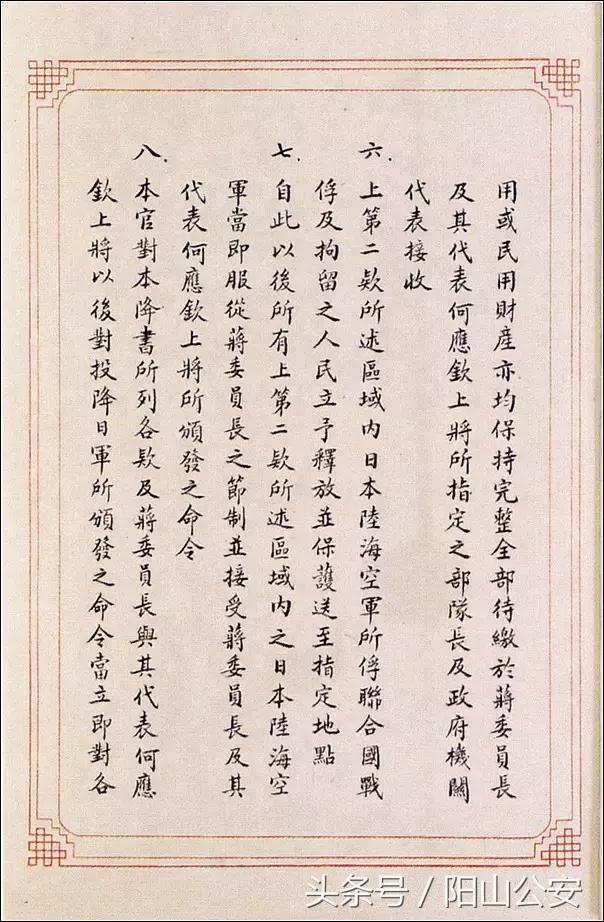 用或民用財產亦均保持完整全部待繳於蔣委員長
及其代表何應欽上將所指定之部隊長及政府機關
代表接收
六.上第二欵所述區域內日本陸海空軍所俘聯合國戰
俘及拘留之人民立予釋放並保護送至指定地點
七.自此以後所有上第二欵所述區域內之日本陸海空
軍當即服從蔣委員長之節制並接受蔣委員長及其
代表何應欽上將所頒發之命令
八.本官對本降書所列各欵及蔣委員長與其代表何應
欽上將以後對投降日軍所頒發之命令當立即對各
头条号/阳山公安